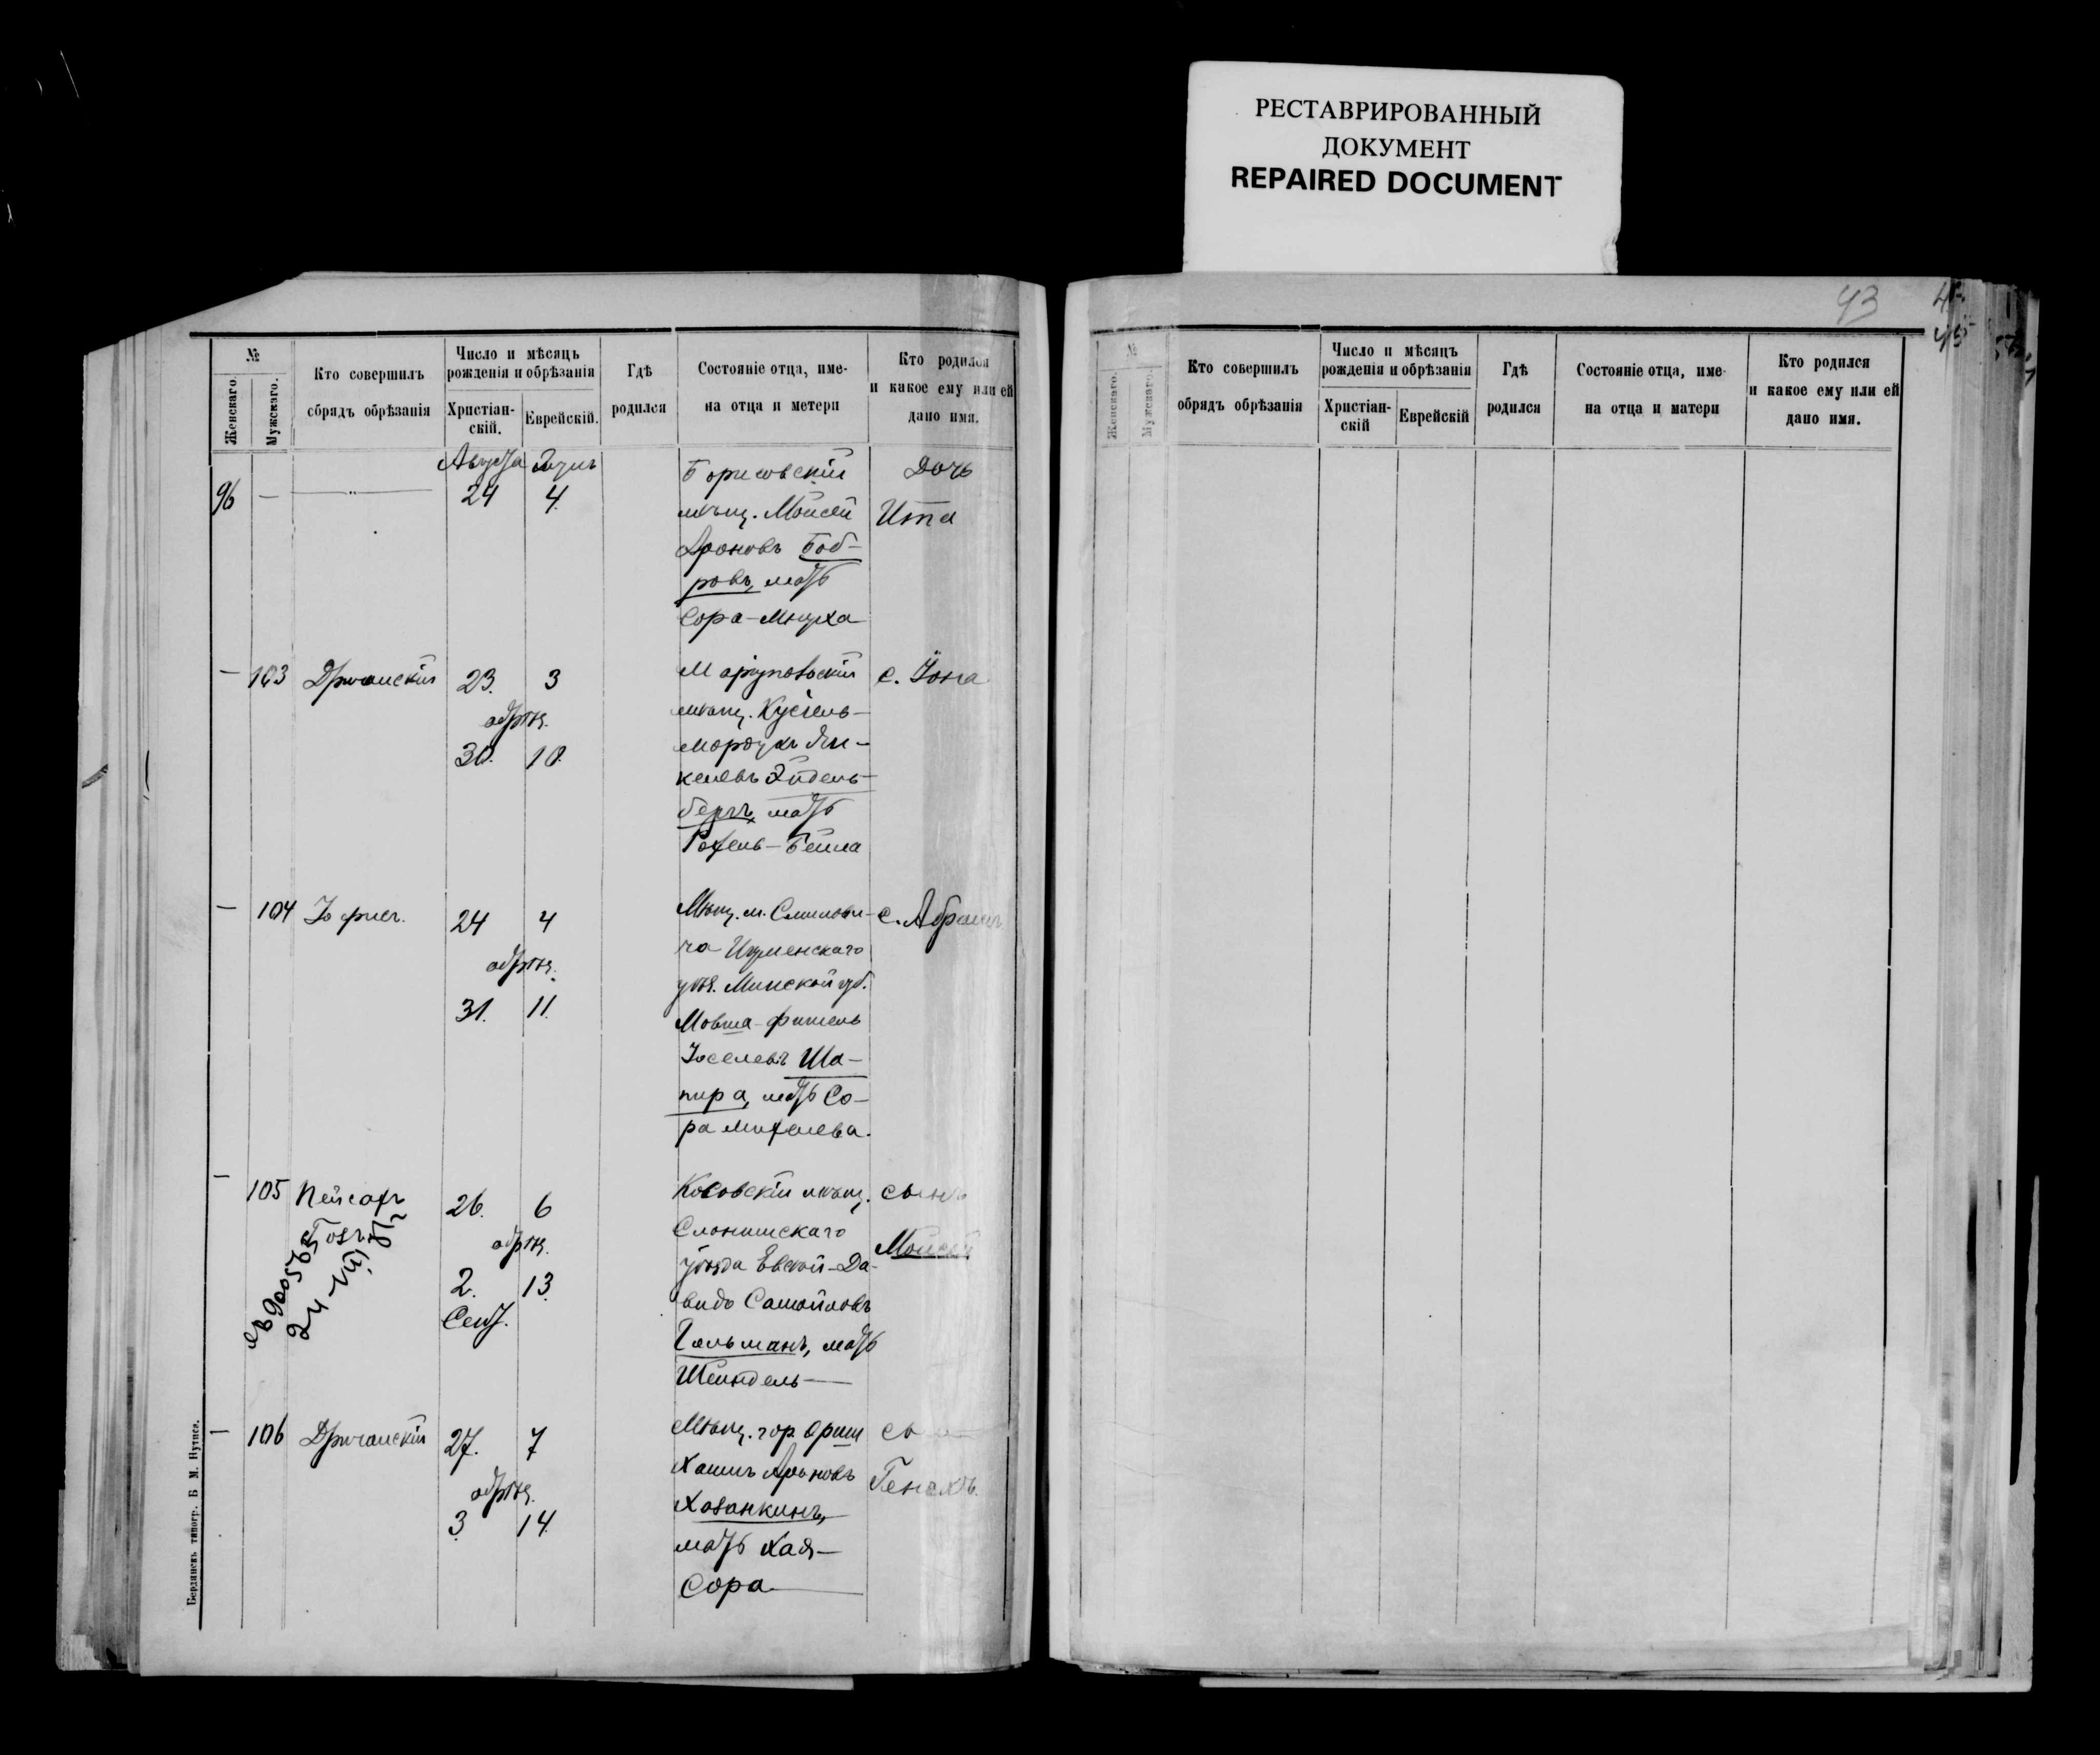 РЕСТАВРИРОВАННЫЙ
ДОКУМЕНТ
REPAIRED DOCUMENT
43
45
№
Женскаго.
Мужскаго.
Кто совершилъ
сбрядъ обрѣзанія
Число и мѣсяцъ
рожденія и обрѣзанія
Христіан-
скій.
Еврейскій.
Гдѣ
родился
Состояніе отца, име-
на отца и метери
Кто родился
и какое ему или ей
дано имя.
Августа
96 — — 24 4.
Борисовскій
мѣщ. Мойсей
Ароновъ Боб-
ровъ, мать
Сора-Мнуха
Дочь
Ита
— 103 23. 3
обрѣз.
30. 10.
мѣщ. Кусiель-
Мордухъ Ян-
келевъ Эйдель-
бергъ, мать
Рохель-Бейла
с. Iона
— 104 24 4
обрѣз.
31. 11.
Мѣщ. м. Смилови-
ча Игуменскаго
уѣз. Минской губ.
Мовша-Фишель
Iоселевъ Ша-
пира, мать Со-
ра Михелева.
с. Абрамъ
— 105 Пейсахъ 26. 6
обрѣз.
2. 13.
Сент.
24-VIII
Косовскій мѣщ.
Слонимскаго
уѣзда Евсей-Да-
видъ Самойловъ
Гельманъ, мать
Шейндель—
сынъ
Мойсей
— 106 27. 7
обрѣз.
3 14.
Мѣщ. гор. Орши
Хаимъ Ароновъ
Хазанкинъ,
мать Хая-
Сора
Генехъ.
Бердянскъ типогр. Б М. Нутисъ.
№
Женскаго.
Мужскаго.
Кто совершилъ
обрядъ обрѣзанія
Число и мѣсяцъ
рожденія и обрѣзанія
Христіан-
скій
Еврейскій
Гдѣ
родился
Состояніе отца, име-
на отца и матери
Кто родился
и какое ему или ей
дано имя.